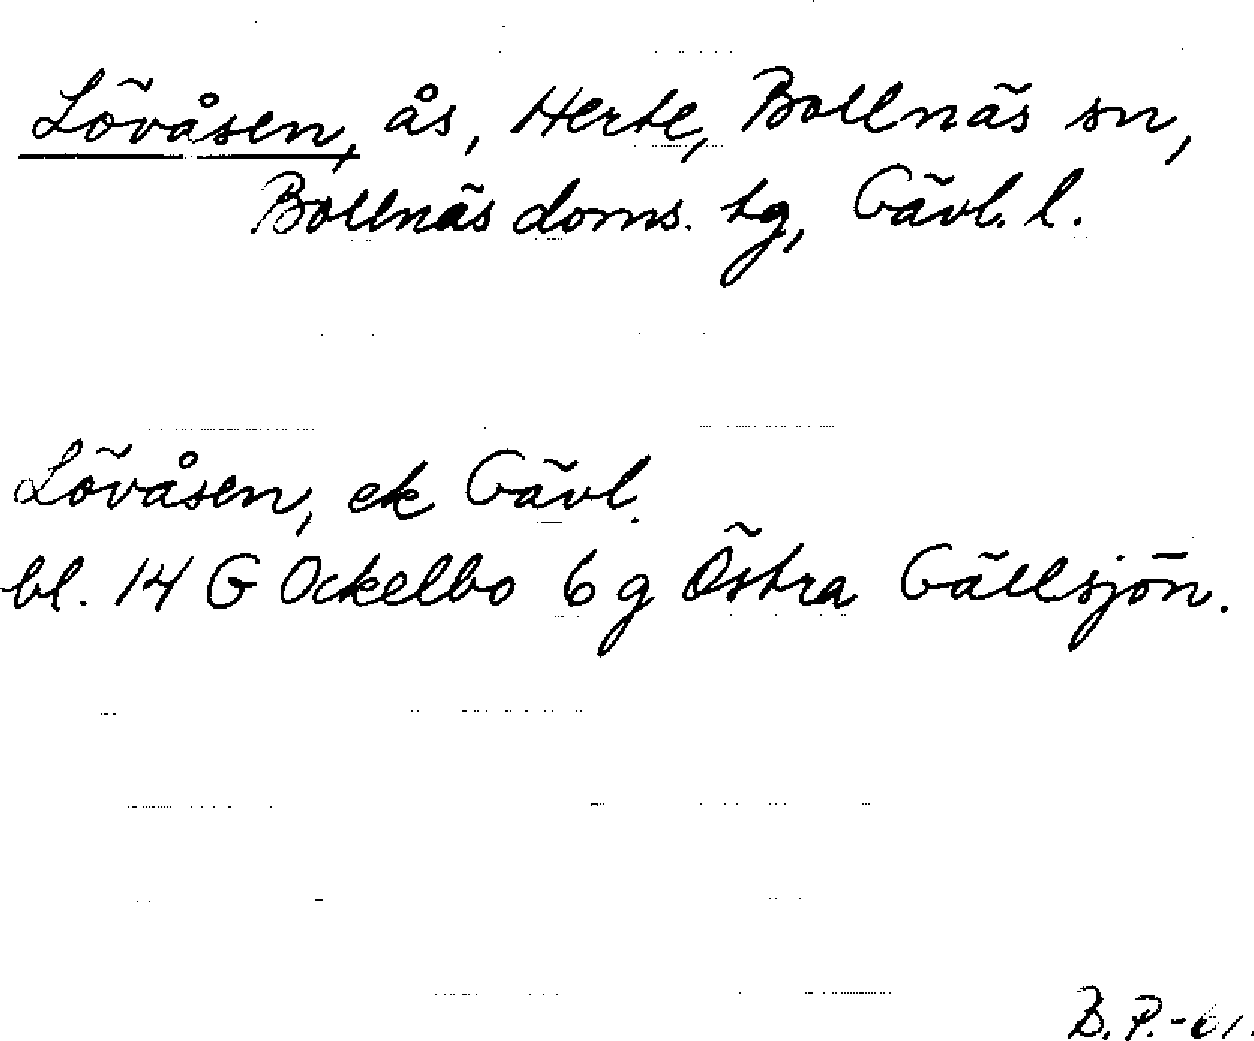 Lövåsen, ås, Herte, Bollnäs sn,
Bollnäs doms. tg, Gävl. l.
Lövåsen, ek Gävl.
bl. 14 G Ockelbo 6 g Östra Gällsjön.
B. P.-61.